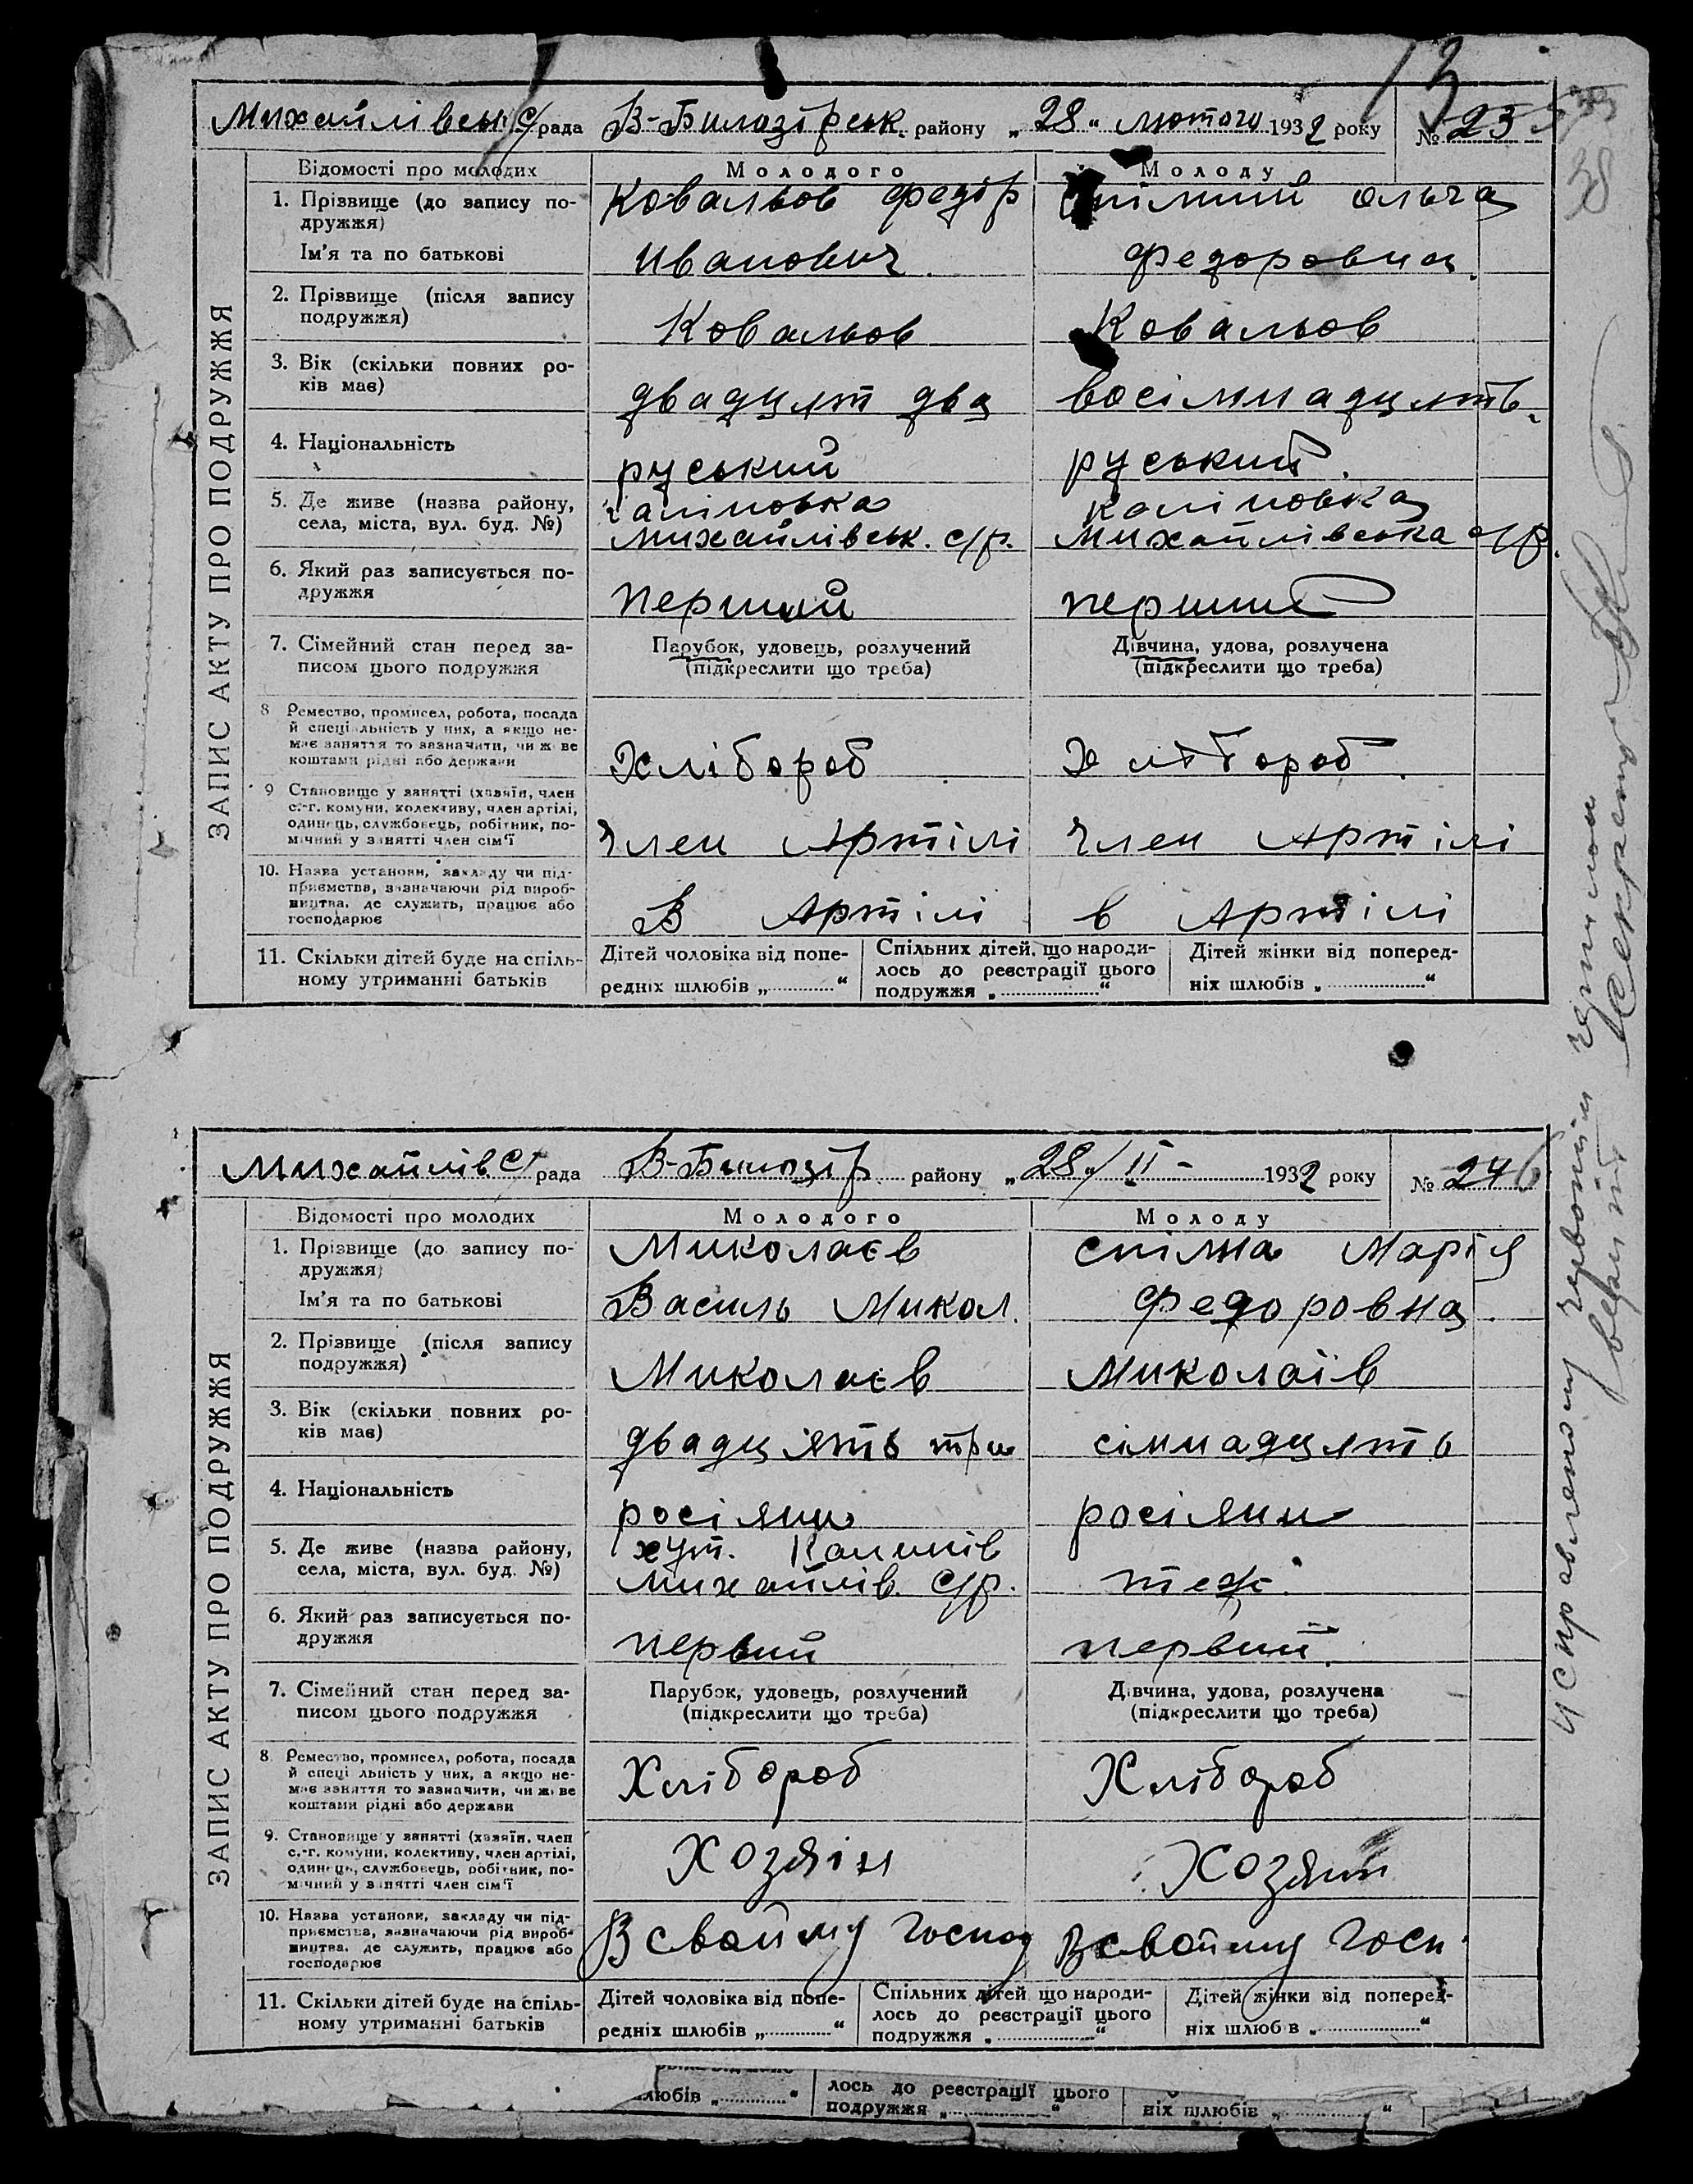 13
Михайлівськ с/рада В-Билозірськ. району „28“ лютого 1932 року № 23
38
ЗАПИС АКТУ ПРО ПОДРУЖЖЯ
Відомості про молодих Молодого Молоду
1. Прізвище (до запису по- Ковальов Федір Ольга
дружжя)
Ім'я та по батькові Иванович Федоровна
2. Прізвище (після запису
подружжя) Ковальов Ковальов
3. Вік (скільки повних ро-
ків має) двадцят два восімнадцять
4. Національність руський руський
5. Де живе (назва району, каліновка
села, міста, вул. буд. №) Михайлівськ. с/р. Михайлівська с/р.
6. Який раз записується по-
дружжя перший перший
7. Сімейний стан перед за- Парубок, удовець, розлучений Дівчина, удова, розлучена
писом цього подружжя (підкреслити що треба) (підкреслити що треба)
8 Ремество, промисел, робота, посада
й спеціальність у них, а якщо не-
має заняття то зазначити, чи живе
коштами рідні або держави Хлібороб Хлібороб
9 Становище у занятті (хазяїн, член
с.-г. комуни, колективу, член артілі,
одинець, службовець, робітник, по-
мічний у занятті член сім'ї Член Артілі Член Артілі
10. Назва установи, закладу чи під-
приємства, зазначаючи рід вироб-
ництва, де служить, працює або
господарює В Артілі в Артілі
11. Скільки дітей буде на спіль- Дітей чоловіка від попе- Спільних дітей, що народи- Дітей жінки від поперед-
ному утриманні батьків редніх шлюбів „ “ лось до реєстрації цього ніх шлюбів „ “
подружжя „ “
Михайлів с/рада В-Билозір району „28“ II - 1932 року № 24
ЗАПИС АКТУ ПРО ПОДРУЖЖЯ
Відомості про молодих Молодого Молоду
1. Прізвище (до запису по- Миколаєв Спілна Марія
дружжя)
Ім'я та по батькові Василь Микол. Федоровна
2. Прізвище (після запису
подружжя) Миколаєв Миколаїв
3. Вік (скільки повних ро-
ків має) двадцять три сімнадцять
4. Національність росіянин росіянин
5. Де живе (назва району, хут.
села, міста, вул. буд. №) Михайлів. с/р. теж
6. Який раз записується по-
дружжя первий первий
7. Сімейний стан перед за- Парубок, удовець, розлучений Дівчина, удова, розлучена
писом цього подружжя (підкреслити що треба) (підкреслити що треба)
8 Ремество, промисел, робота, посада
й спеціальність у них, а якщо не-
має заняття то зазначити, чи живе
коштами рідні або держави Хлібороб Хлібороб
9. Становище у занятті (хазяїн, член
с.-г. комуни, колективу, член артілі,
одинець, службовець, робітник, по-
мічний у занятті член сім'ї Хозяін Хозяин
10. Назва установи, закладу чи під-
приємства, зазначаючи рід вироб-
ництва, де служить, працює або
господарює В свойму господ В свойму госп.
11. Скільки дітей буде на спіль- Дітей чоловіка від попе- Спільних дітей, що народи- Дітей жінки від поперед-
ному утриманні батьків редніх шлюбів „ “ лось до реєстрації цього ніх шлюбів „ “
подружжя „ “
шлюбів „ “ лось до реєстрації цього
подружжя „ “ ніх шлюбів „ “
исправляному червоним чернилом
верить Секретар